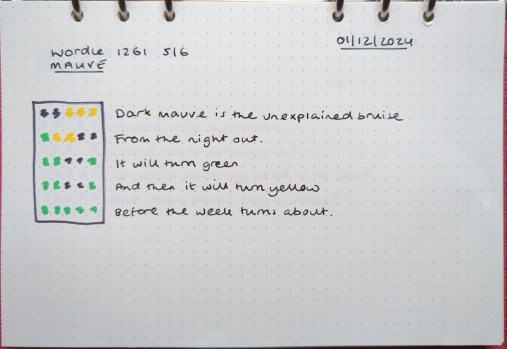 01/12/2024
Wordle 1261 5/6
MAUVE
Dark mauve is the unexplained bruise
From the night out.
It will turn green
And then it will turn yellow
Before the week turns about.